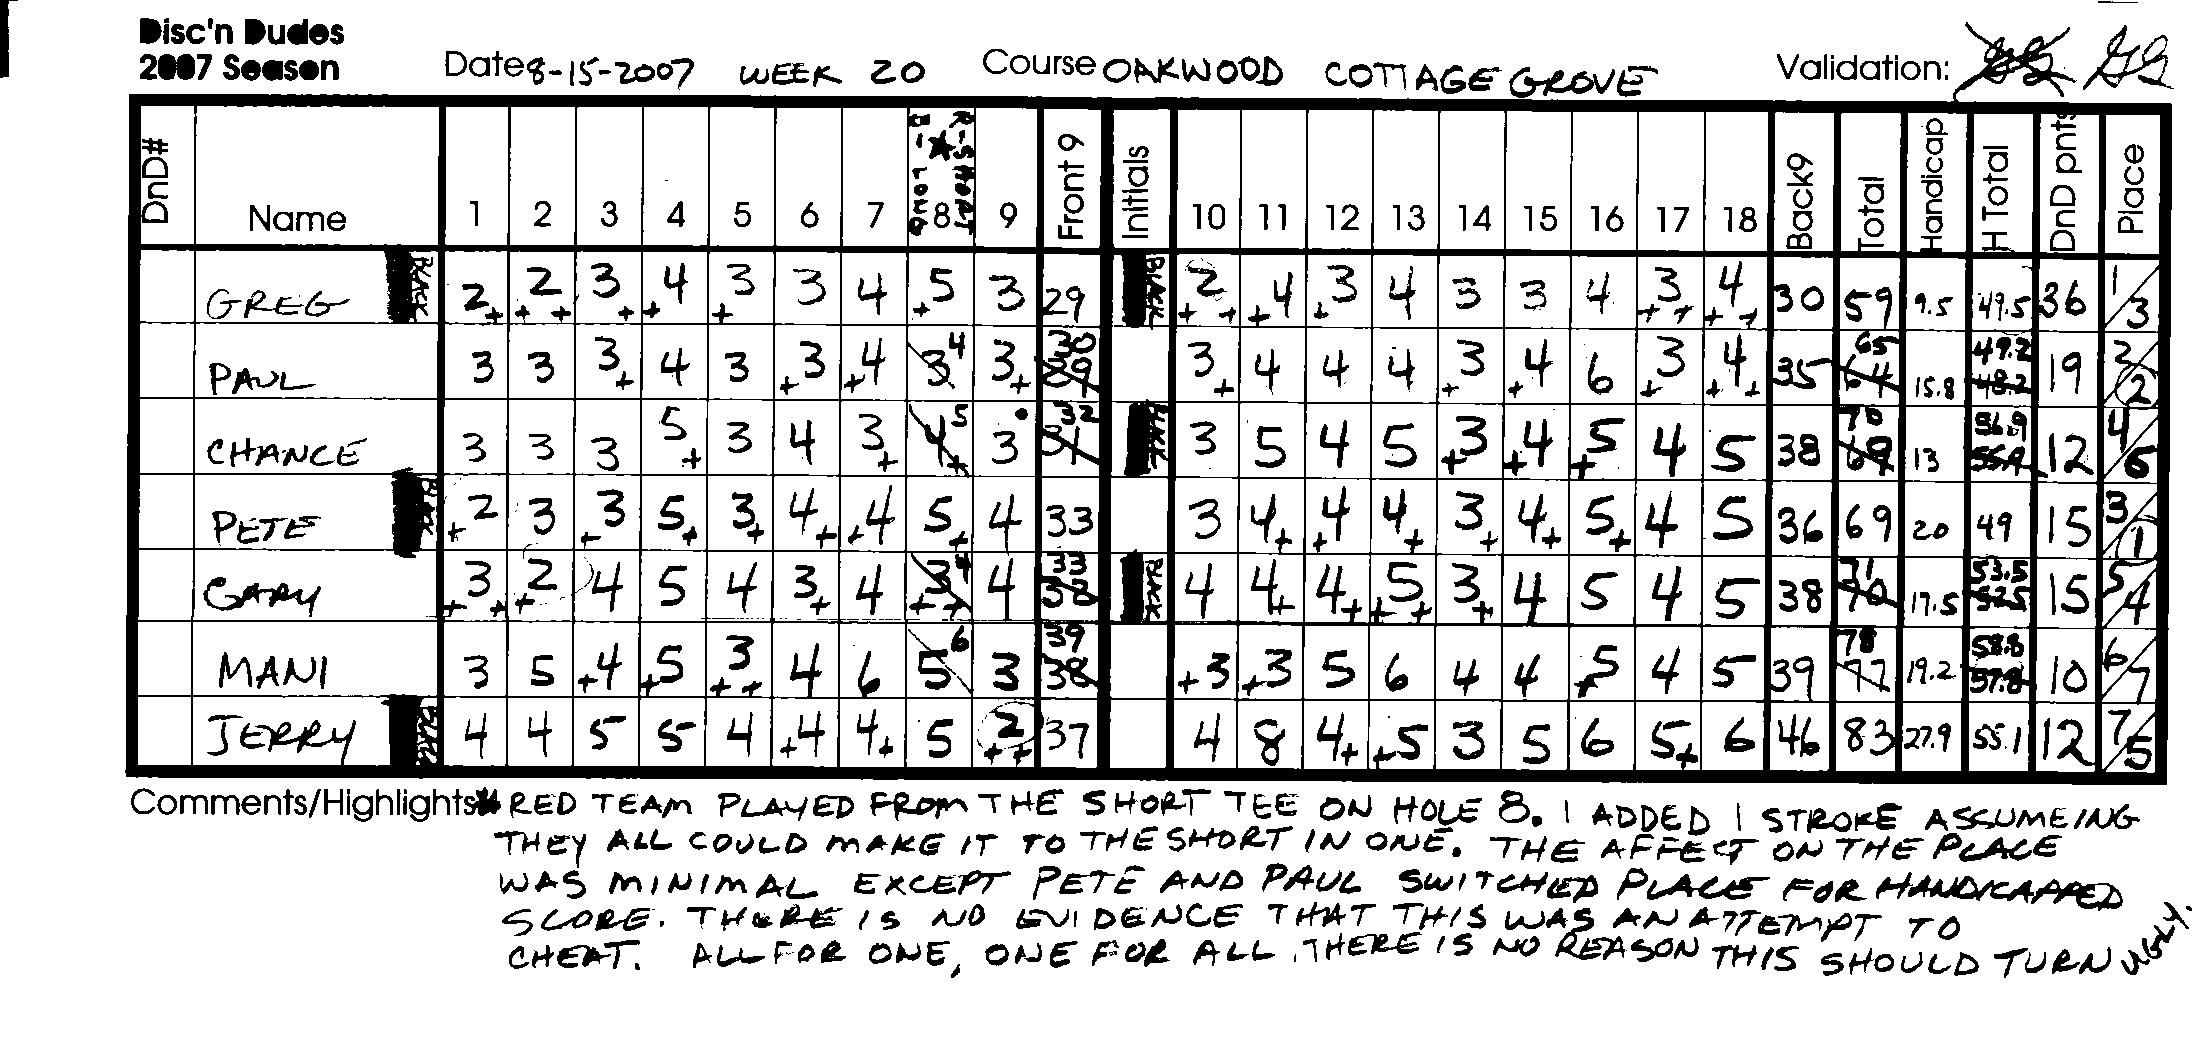 Disc'n Dudes
2007 Season Date 8-15-2007 WEEK 20 Course OAKWOOD COTTAGE GROVE Validation: GG GG
DnD# Name 1 2 3 4 5 6 7 8 B-LONG ★ R-SHORT 9 Front 9 Initials 10 11 12 13 14 15 16 17 18 Back9 Total Handicap H Total DnD pnts Place
GREG BLACK 2+ +2+ 3+ +4 +3 3 4 +5 3 29 BLACK +2+ +4 +3 4 3 3 4 +3+ +4+ 30 59 9.5 49.5 36 1/3
PAUL 3 3 3+ 4 3 +3 +4 3 4 3+ 29 30 3+ 4 4 4 +3 +4 6 +3 +4+ 35 64 65 15.8 48.2 49.2 19 2/2
CHANCE 3 3 3 5+ 3 4 3+ 4+ 5 3 31 32 BLACK 3 5 4 5 +3 +4 +5 4 5 38 69 70 13 55.9 56.9 12 4/6
PETE BLACK +2 3 +3 5+ 3+ 4+ +4 5+ 4 33 3 4+ +4 4+ 3+ 4+ 5+ 4 5 36 69 20 49 15 3/1
GARY +3+ +2 4 5 4 3+ 4 +3+ 4 4 32 33 BLACK 4 4+ 4+ +5+ 3+ 4 5 4 5 38 70 71 17.5 52.5 53.5 15 5/4
MANI 3 5 +4 +5 +3+ 4 6 5 6 3 38 39 +3 +3 5 6 4 4 +5 4 5 39 77 78 19.2 57.8 58.8 10 6/7
JERRY BLACK 4 4 5 5 4 +4 4+ 5 +2+ 37 4 8 4+ +5 3 5 6 5+ 6 46 83 27.9 55.1 12 7/5
Comments/Highlights ★ RED TEAM PLAYED FROM THE SHORT TEE ON HOLE 8. I ADDED 1 STROKE ASSUMEING
THEY ALL COULD MAKE IT TO THE SHORT IN ONE. THE AFFECT ON THE PLACE
WAS MINIMAL EXCEPT PETE AND PAUL SWITCHED PLACE FOR HANDICAPPED
SCORE. THERE IS NO EVIDENCE THAT THIS WAS AN ATTEMPT TO
CHEAT. ALL FOR ONE, ONE FOR ALL. THERE IS NO REASON THIS SHOULD TURN UGLY.